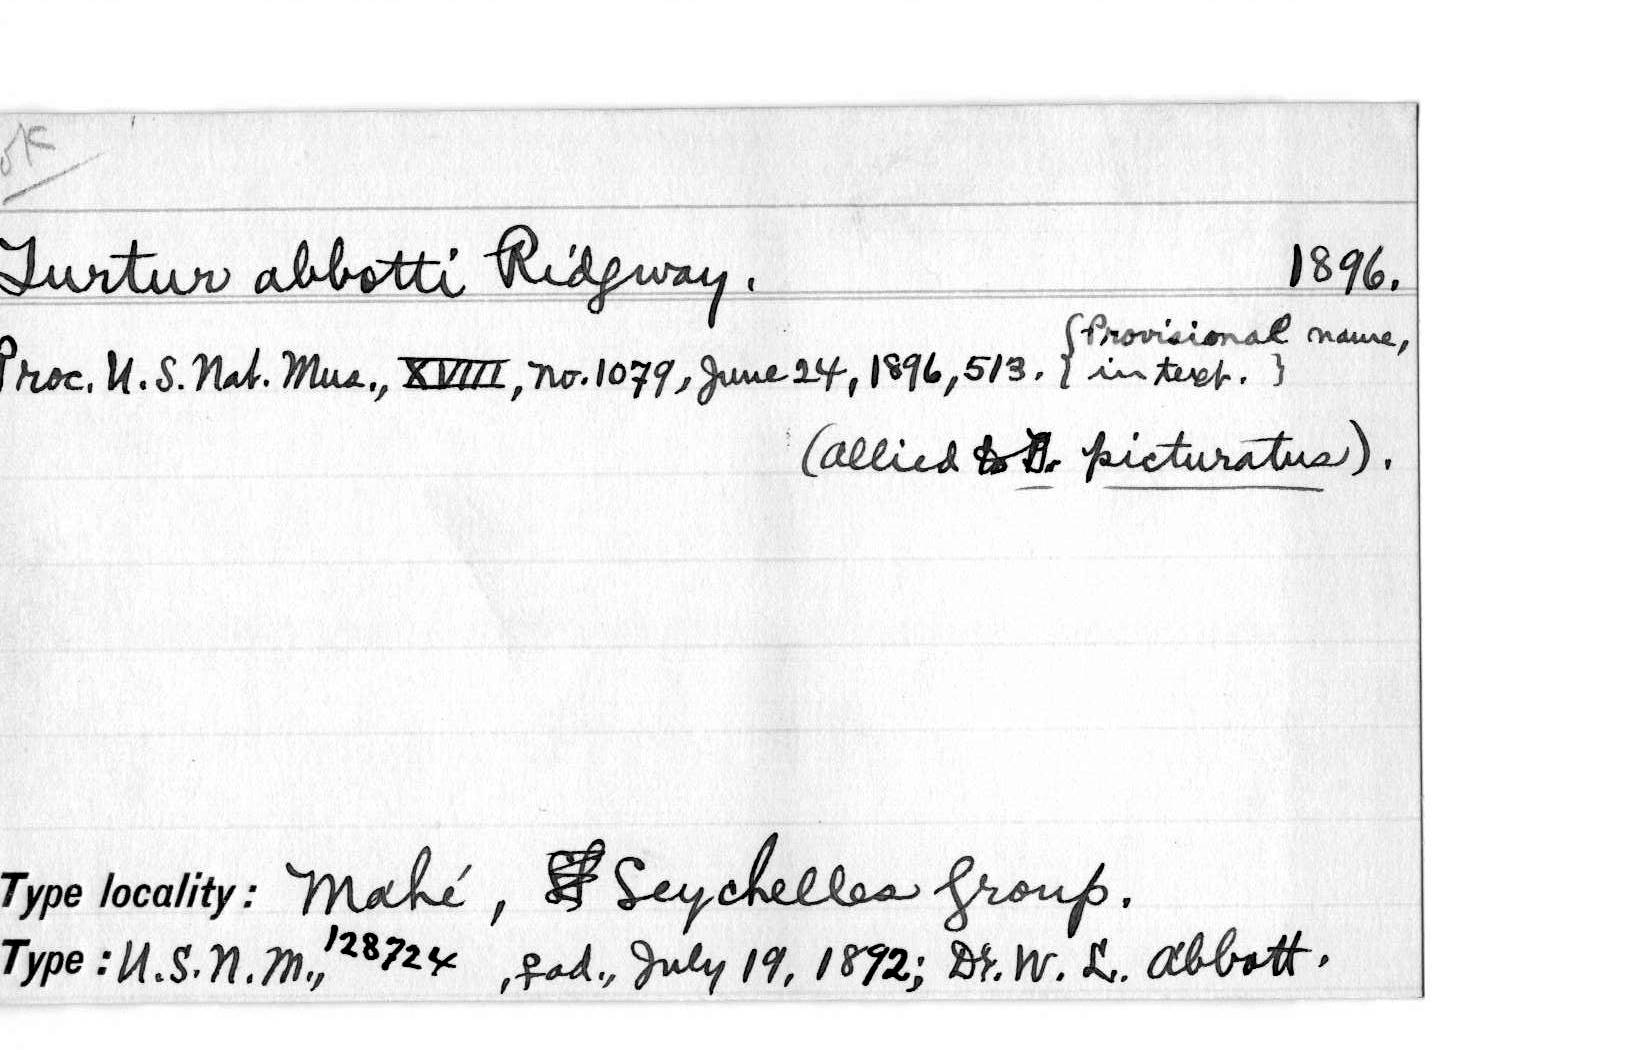 OK
Turtur abbotti Ridgway. 1896.
Proc. U.S. Nat. Mus., XVIII, no. 1079, June 24, 1896, 513. {Provisional name,
in text.}
(allied to T. picturatus).
Type locality: Mahé, Seychelles Group.
Type: U.S.N.M., 128724, ♀ ad., July 19, 1892; Dr. W. L. Abbott.